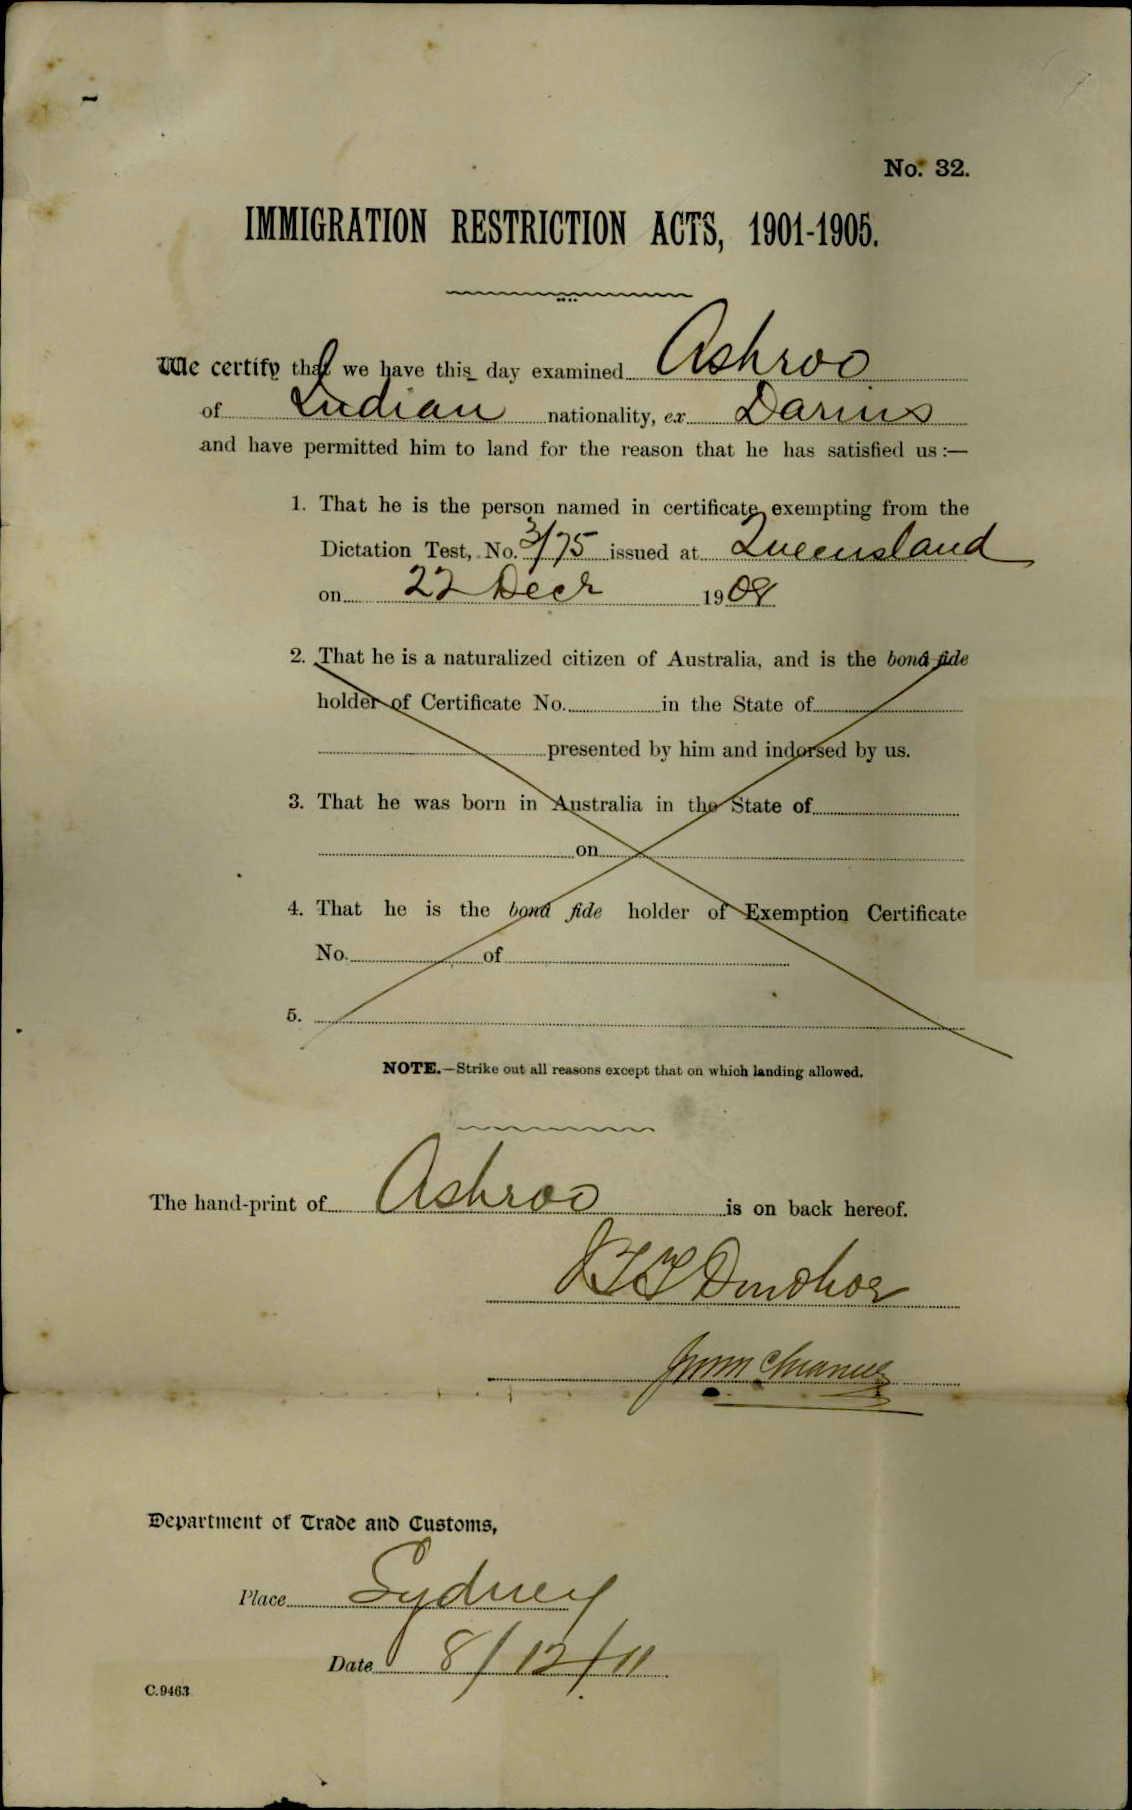 No. 32.
IMMIGRATION RESTRICTION ACTS, 1901-1905.
We certify that we have this day examined Ashroo
of Indian nationality, ex Darius
and have permitted him to land for the reason that he has satisfied us :—
1. That he is the person named in certificate exempting from the
Dictation Test, No. 3/75 issued at Queensland
on 22 Decr 1908
2. That he is a naturalized citizen of Australia, and is the bonâ fide
holder of Certificate No. in the State of
presented by him and indorsed by us.
3. That he was born in Australia in the State of
on
4. That he is the bonâ fide holder of Exemption Certificate
No. of
5.
NOTE.—Strike out all reasons except that on which landing allowed.
The hand-print of Ashroo is on back hereof.
Donohoe
Department of Trade and Customs,
Place Sydney
Date 8/12/11
C.9463